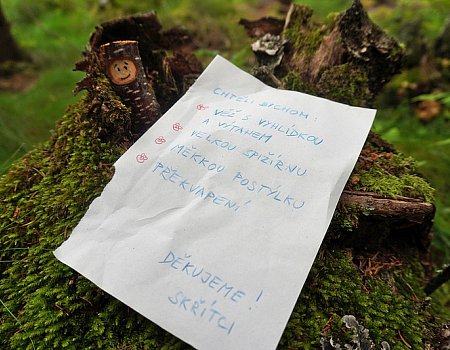 CHTĚLI BYCHOM:
VĚŽ S VYHLÍDKOU
A VÝTAHEM
VELKOU SPIŽÍRNU
MĚKKOU POSTÝLKU
PŘEKVAPENÍ
DĚKUJEME!
SKŘÍTCI